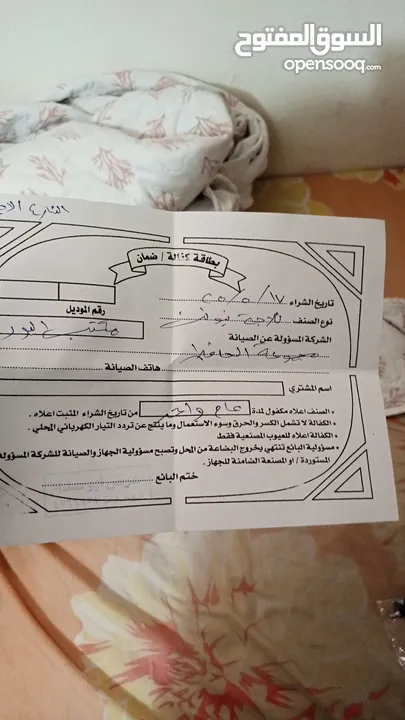 السوق المفتوح
opensooq.com
بطاقة كفالة / ضمان
تاريخ الشراء ١٧ / ٥ / ٢٥
رقم الموديل
نوع الصنف ثلاجة
مكتب
الشركة المسؤولة عن الصيانة
مجموعة الحافظ
هاتف الصيانة
اسم المشتري
• الصنف اعلاه مكفول لمدة عام واحد من تاريخ الشراء المثبت اعلاه.
• الكفالة لا تشمل الكسر والحرق وسوء الاستعمال وما ينتج عن تردد التيار الكهربائي المحلي.
• الكفالة اعلاه للعيوب المصنعية فقط
• مسؤولية البائع تنتهي بخروج البضاعة من المحل وتصبح مسؤولية الجهاز والصيانة للشركة المسؤولة
المستوردة / او المصنعة الضامنة للجهاز.
ختم البائع